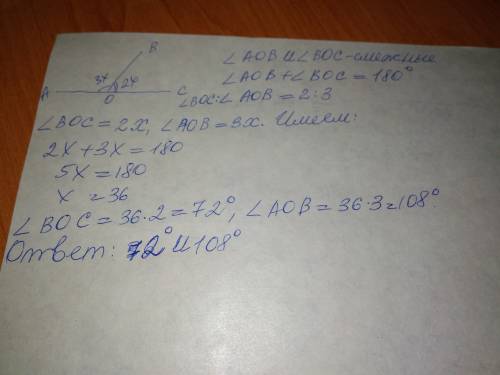 B
3x 2x
A O C
∠AOB и ∠BOC - смежные
∠AOB + ∠BOC = 180°
∠BOC : ∠AOB = 2 : 3
∠BOC = 2x, ∠AOB = 3x. Имеем:
2x + 3x = 180
5x = 180
x = 36
∠BOC = 36 · 2 = 72°, ∠AOB = 36 · 3 = 108°.
Ответ: 72° и 108°